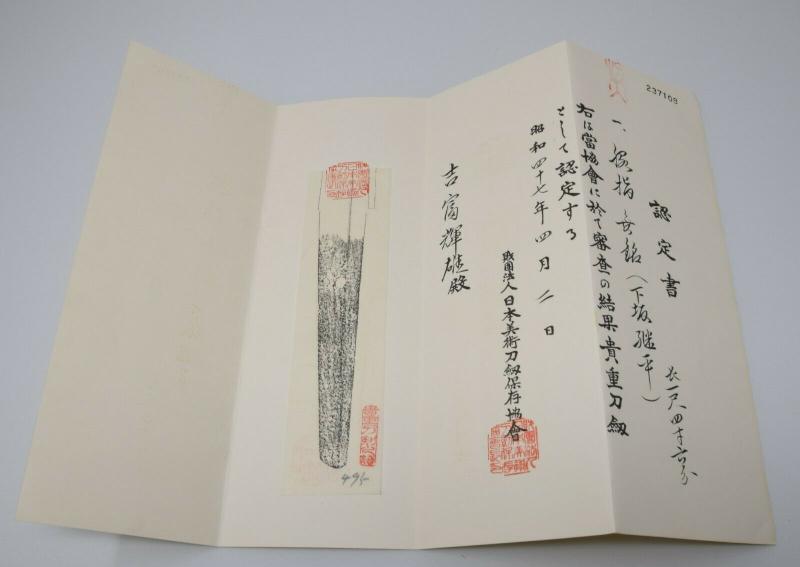 237109
認定書
一、脇指 無銘（下坂継平）
長一尺四寸六分
右は當協會に於て審査の結果貴重刀劔
として認定する
昭和四十七年四月二日
財團法人日本美術刀劔保存協會
吉富輝雄殿